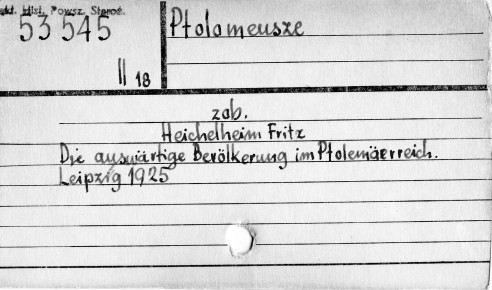 Hist. Powsz. Staroż.
53 545
II 18
Ptolomeusze
zob.
Heichelheim Fritz
Die auswärtige Bevölkerung im Ptolemäerreich.
Leipzig 1925